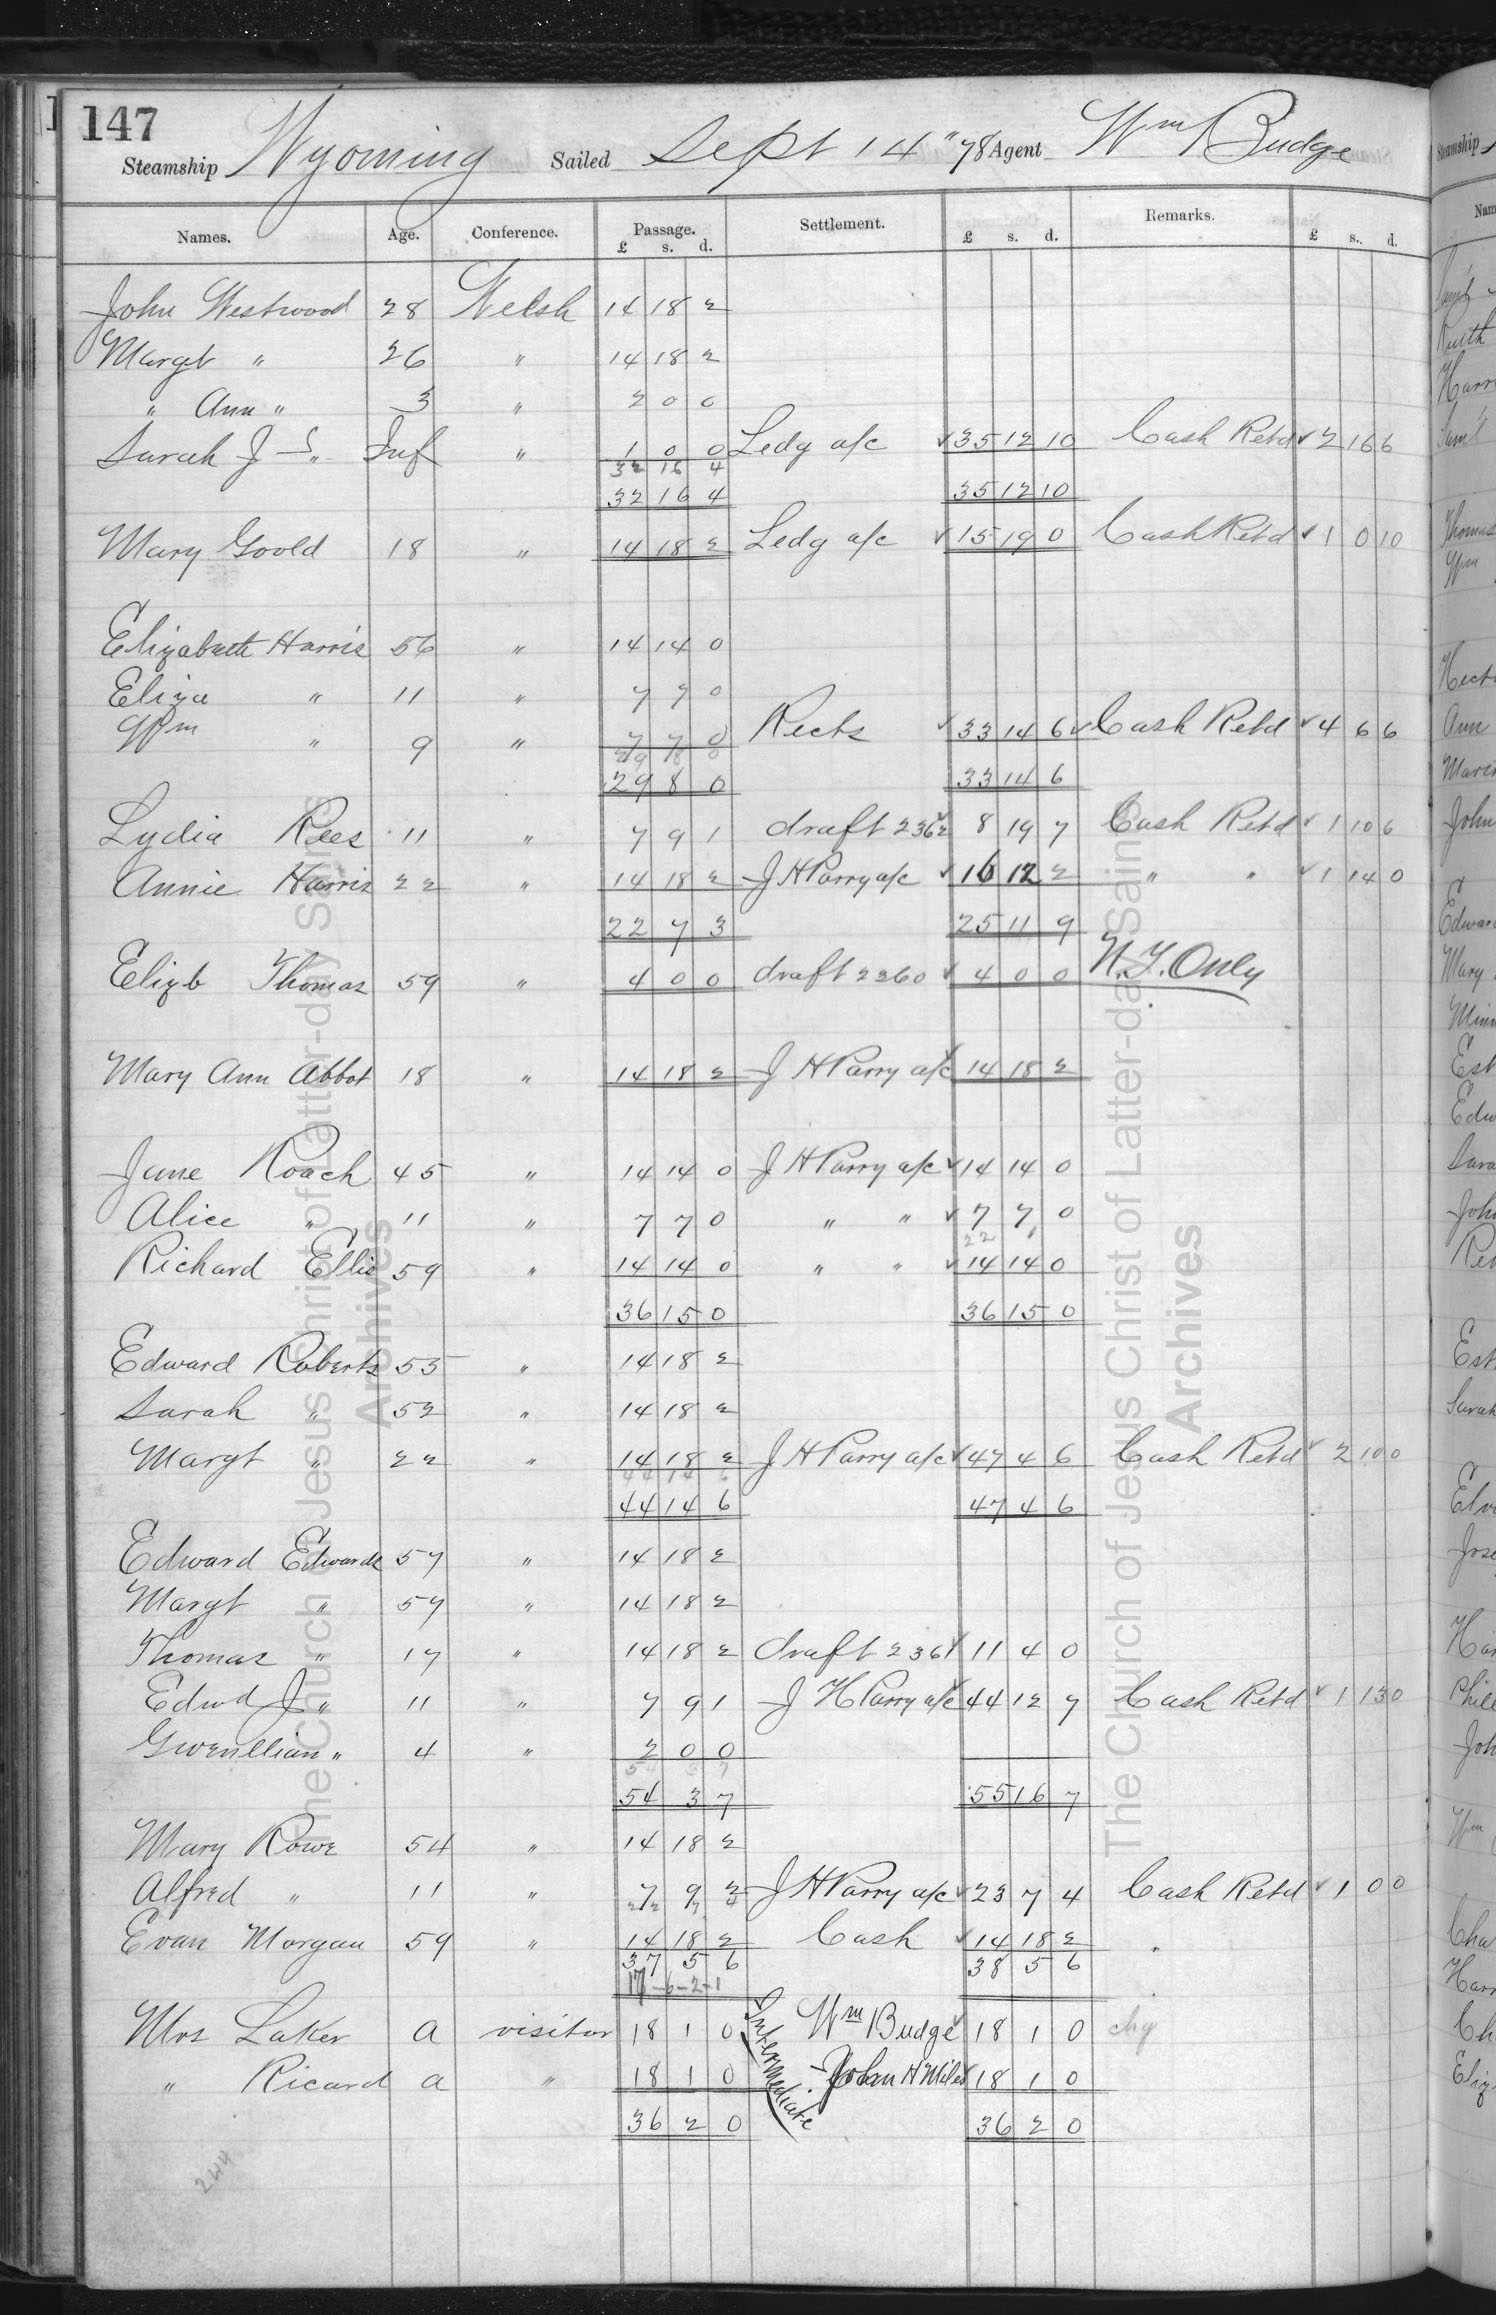 147
Steamship Wyoming Sailed Sept 14 " 78 Agent Wm Budge
Names. Age. Conference. Passage. £ s. d. Settlement. £ s. d. Remarks. £ s. d.
John Westwood 28 Welsh 14 18 2
Margt " 26 " 14 18 2
" Ann " 3 " 2 0 0
Sarah J " Inf " 1 0 0 Ledg a/c ✓ 35 12 10 Cash Retd ✓ 2 16 6
32 16 4
32 16 4 35 12 10
Mary Goold 18 " 14 18 2 Ledg a/c ✓ 15 19 0 Cash Retd ✓ 1 0 10
Elizabeth Harris 56 " 14 14 0
Eliza " 11 " 7 7 0
Wm " 9 " 7 7 0 Rects ✓ 33 14 6 ✓ Cash Retd ✓ 4 6 6
29 8 0 33 14 6
Lydia Rees 11 " 7 9 1 draft 2362 ✓ 8 19 7 Cash Retd ✓ 1 10 6
Annie Harris 22 " 14 18 2 J H Parry a/c ✓ 16 12 2 " " ✓ 1 14 0
22 7 3 25 11 9
Elizb Thomas 59 " 4 0 0 draft 2360 ✓ 4 0 0 N.Y. Only
Mary Ann Abbot 18 " 14 18 2 J H Parry a/c ✓ 14 18 2
Jane Roach 45 " 14 14 0 J H Parry a/c ✓ 14 14 0
Alice " 11 " 7 7 0 " " ✓ 7 7 0
22 1
Richard Ellis 59 " 14 14 0 " " ✓ 14 14 0
36 15 0 36 15 0
Edward Roberts 55 " 14 18 2
Sarah " 52 " 14 18 2
Margt " 22 " 14 18 2 J H Parry a/c ✓ 47 4 6 Cash Retd ✓ 2 10 0
44 14 6
44 14 6 47 4 6
Edward Edwards 57 " 14 18 2
Margt " 57 " 14 18 2
Thomas " 17 " 14 18 2 draft 2361 ✓ 11 4 0
Edwd J " 11 " 7 9 1 J H Parry a/c ✓ 44 12 7 Cash Retd ✓ 1 13 0
Gwenllian " 4 " 2 0 0
54 3 7
54 3 7 55 16 7
Mary Rowe 54 " 14 18 2
Alfred " 11 " 7 9 2 J H Parry a/c ✓ 23 7 4 Cash Retd ✓ 1 0 0
22 7 4
Evan Morgan 59 " 14 18 2 Cash ✓ 14 18 2
37 5 6 38 5 6
17-6-2-1
Mrs Laker a visitor 18 1 0 Intermediate Wm Budge ✓ 18 1 0 chg
" Ricard a " 18 1 0 John H Miles ✓ 18 1 0
36 2 0 36 2 0
244
The Church of Jesus Christ of Latter-day Saints
Archives
The Church of Jesus Christ of Latter-day Saints
Archives
Steamship
Ruth
Thomas
Wm
Ann
John
Edward
Mary
Sarah